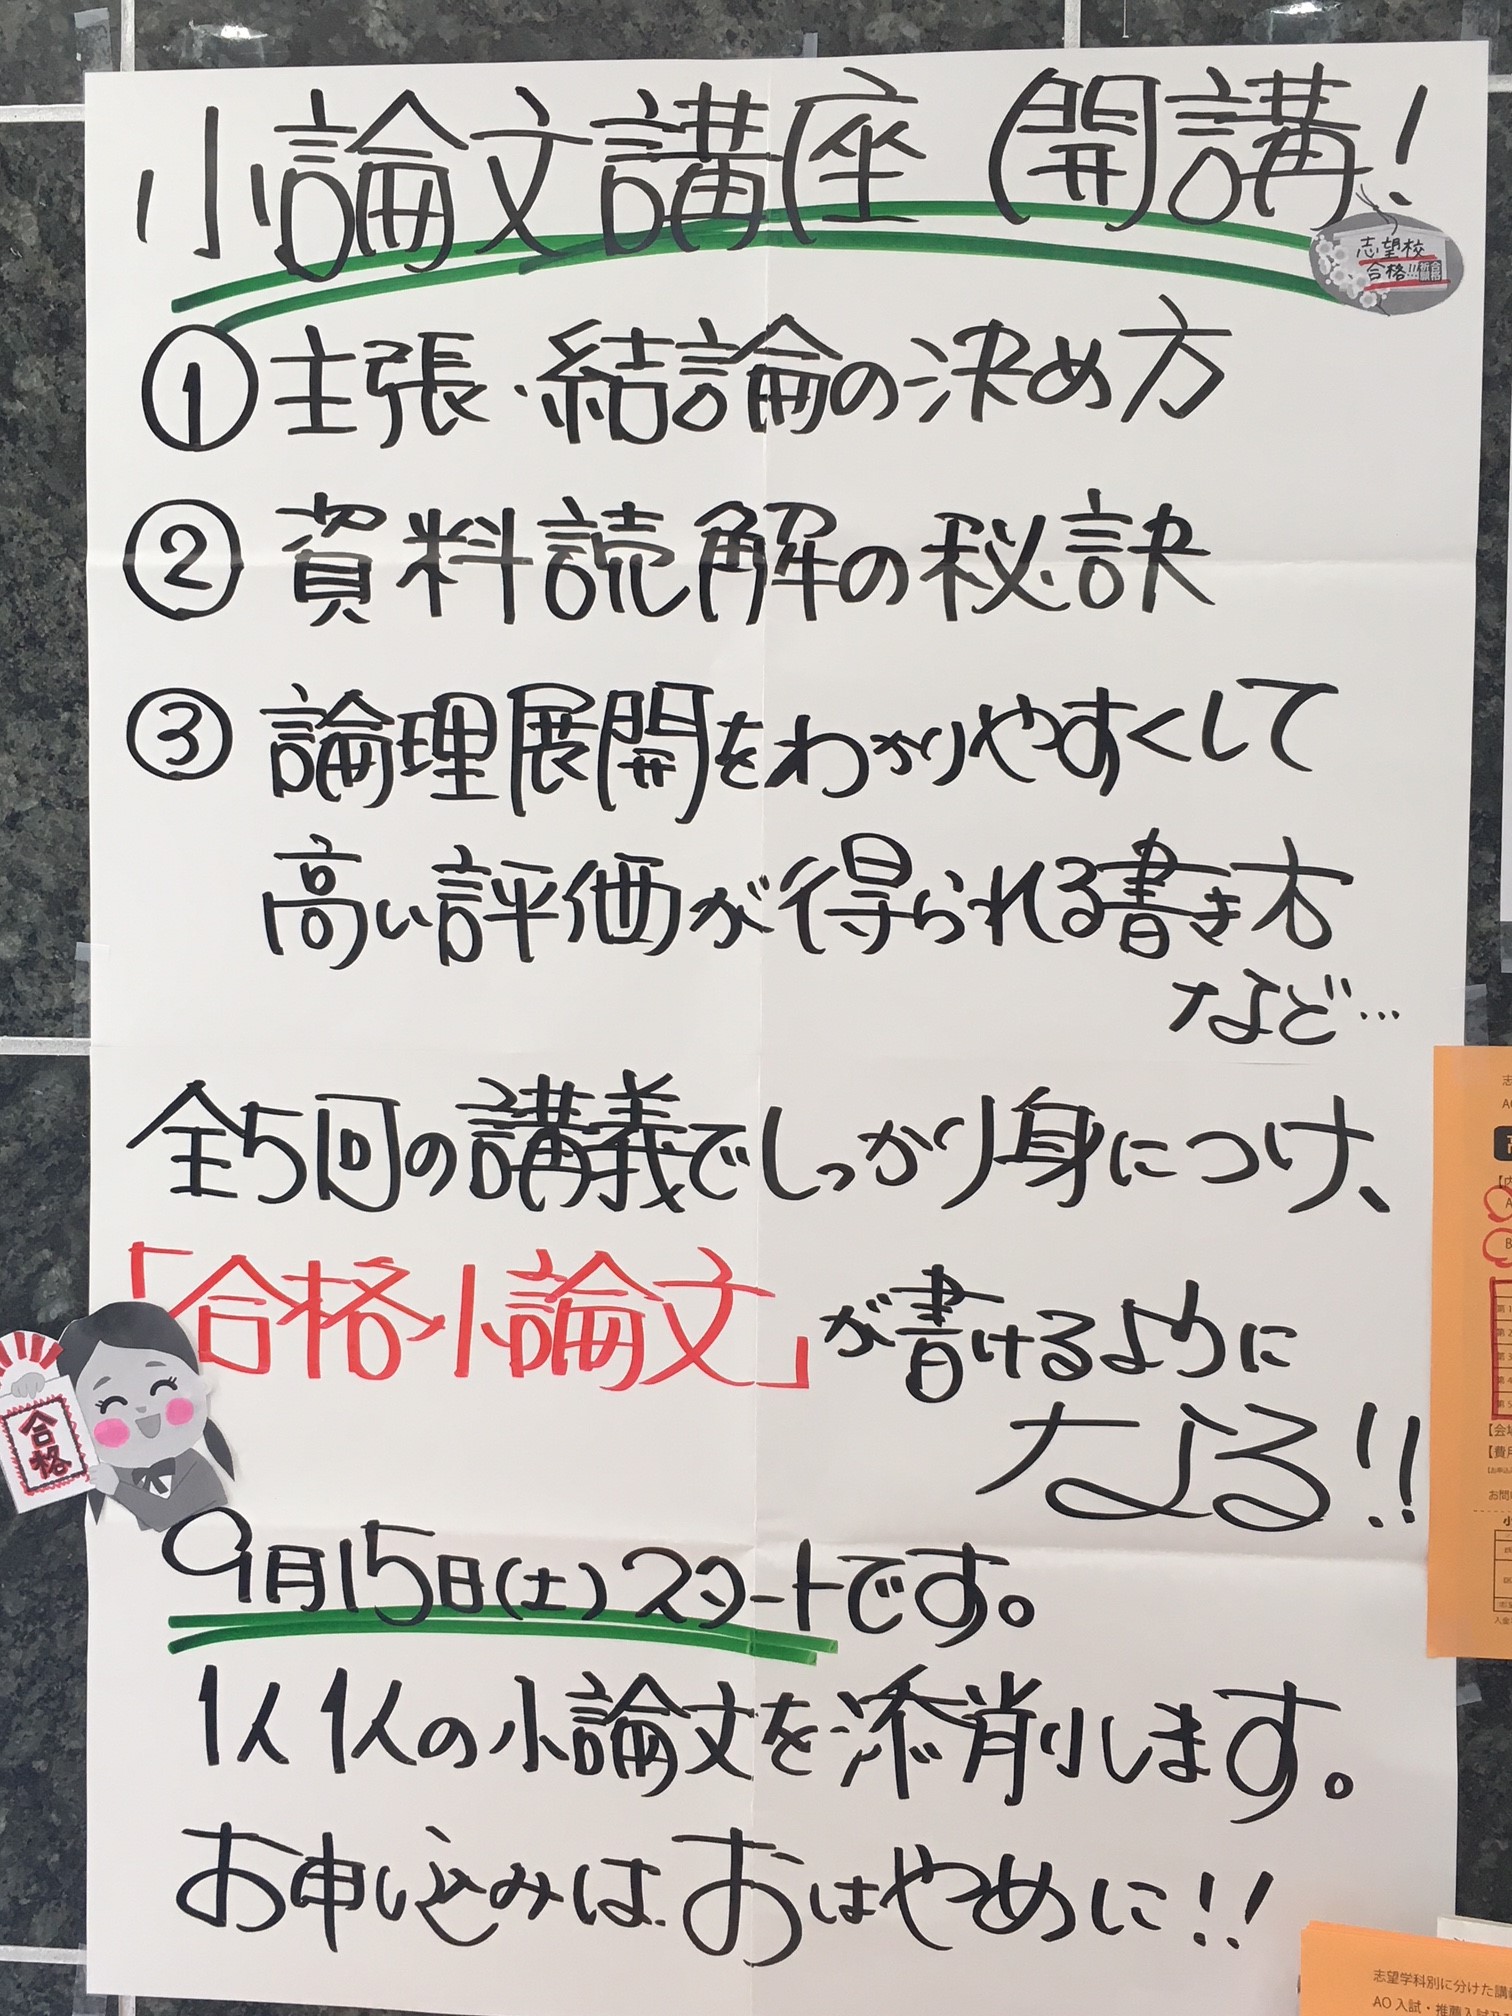 小論文講座 開講!
志望校
合格!!! 合格祈願
① 主張・結論の決め方
② 資料読解の秘訣
③ 論理展開をわかりやすくして
高い評価が得られる書き方
など…
全5回の講義でしっかり身につけ、
「合格小論文」が書けるように
なる!!
合格
9月15日(土)スタートです。
1人1人の小論文を添削します。
お申し込みは おはやめに!!
志望学科別に分けた講
AO入試・推薦入試